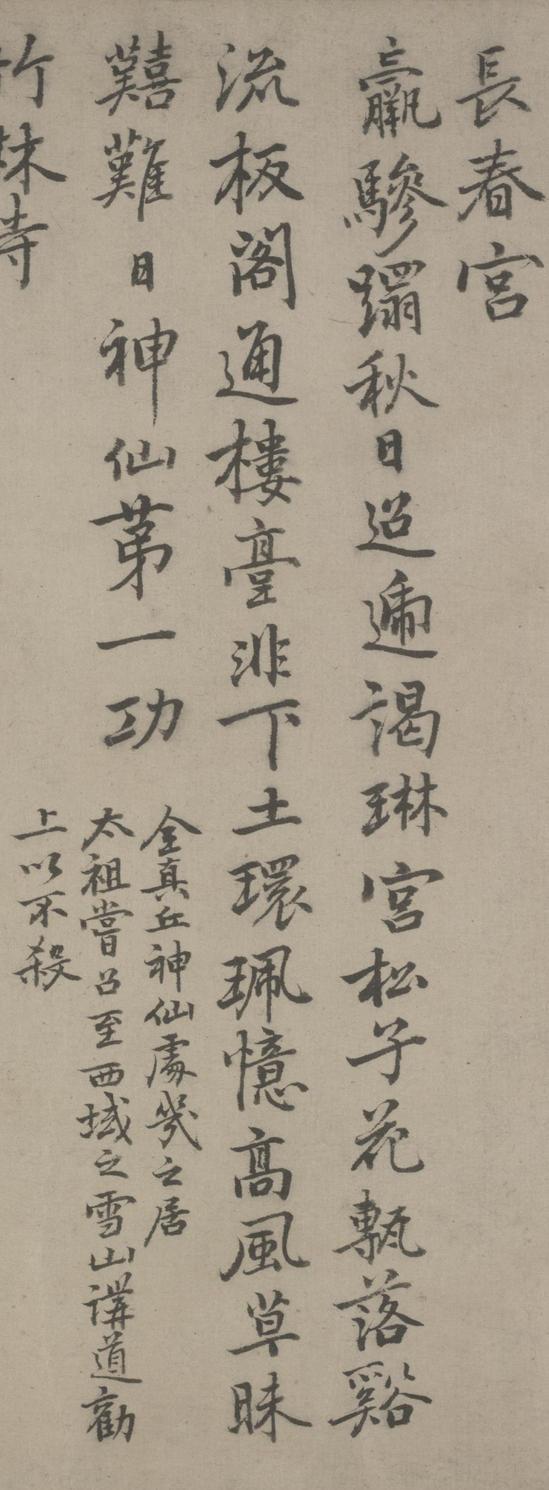 長春宮
羸驂蹋秋日迢遞謁琳宮松子花甎落谿
流板閣通樓臺非下土環珮憶高風草昧
囏難日神仙第一功
全真丘神仙處幾之居
太祖嘗召至西域之雪山講道勸
上以不殺
竹林寺